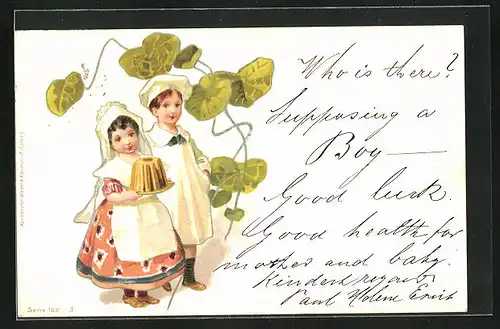 Who is there?
Supposing a
Boy —
Good luck.
Good health for
mother and baby.
Kindest regards
Paul Helene Ernst
Serie 120 3.